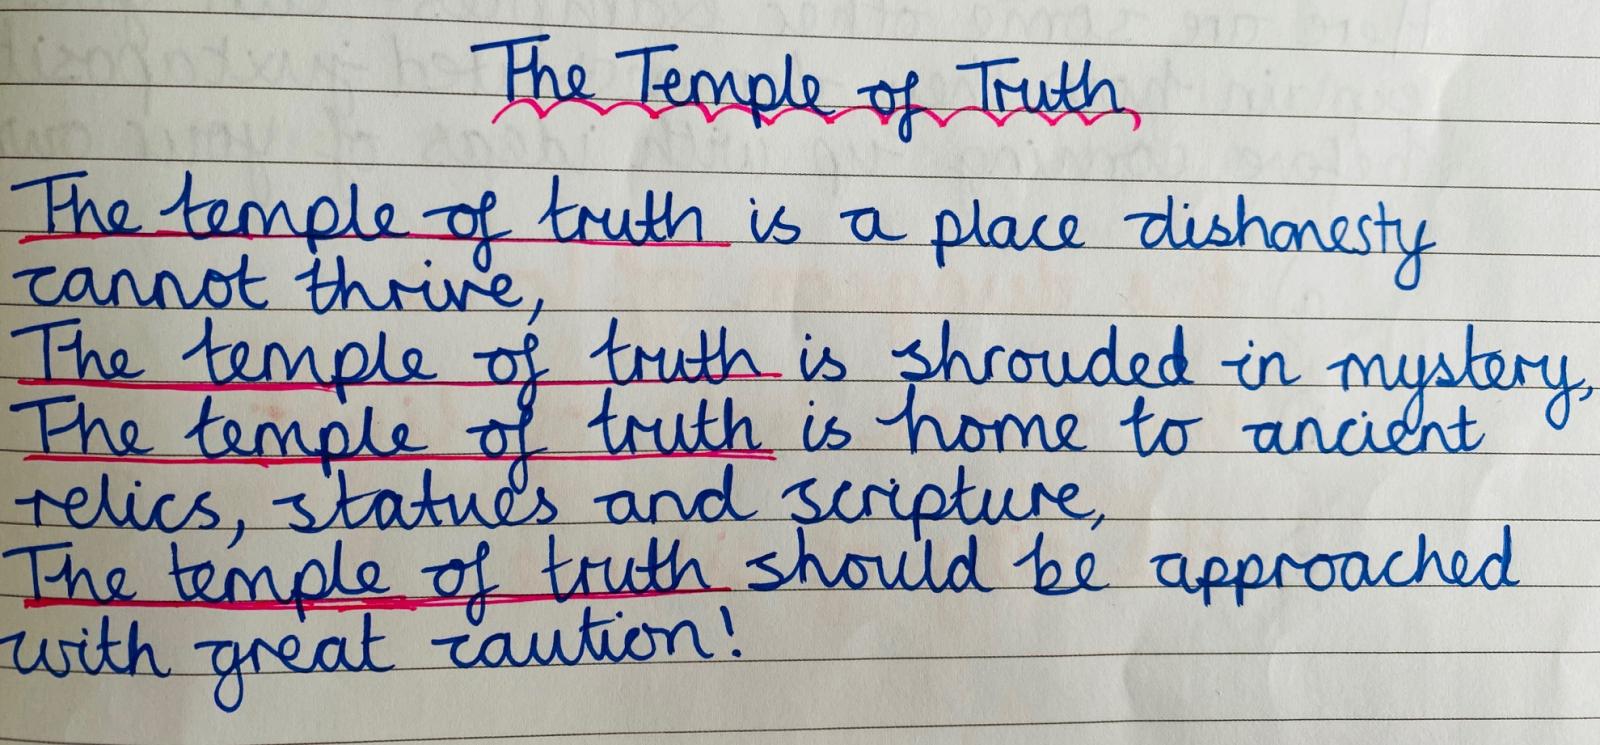 The Temple of Truth
The temple of truth is a place dishonesty
cannot thrive,
The temple of truth is shrouded in mystery,
The temple of truth is home to ancient
relics, statues and scripture,
The temple of truth should be approached
with great caution!